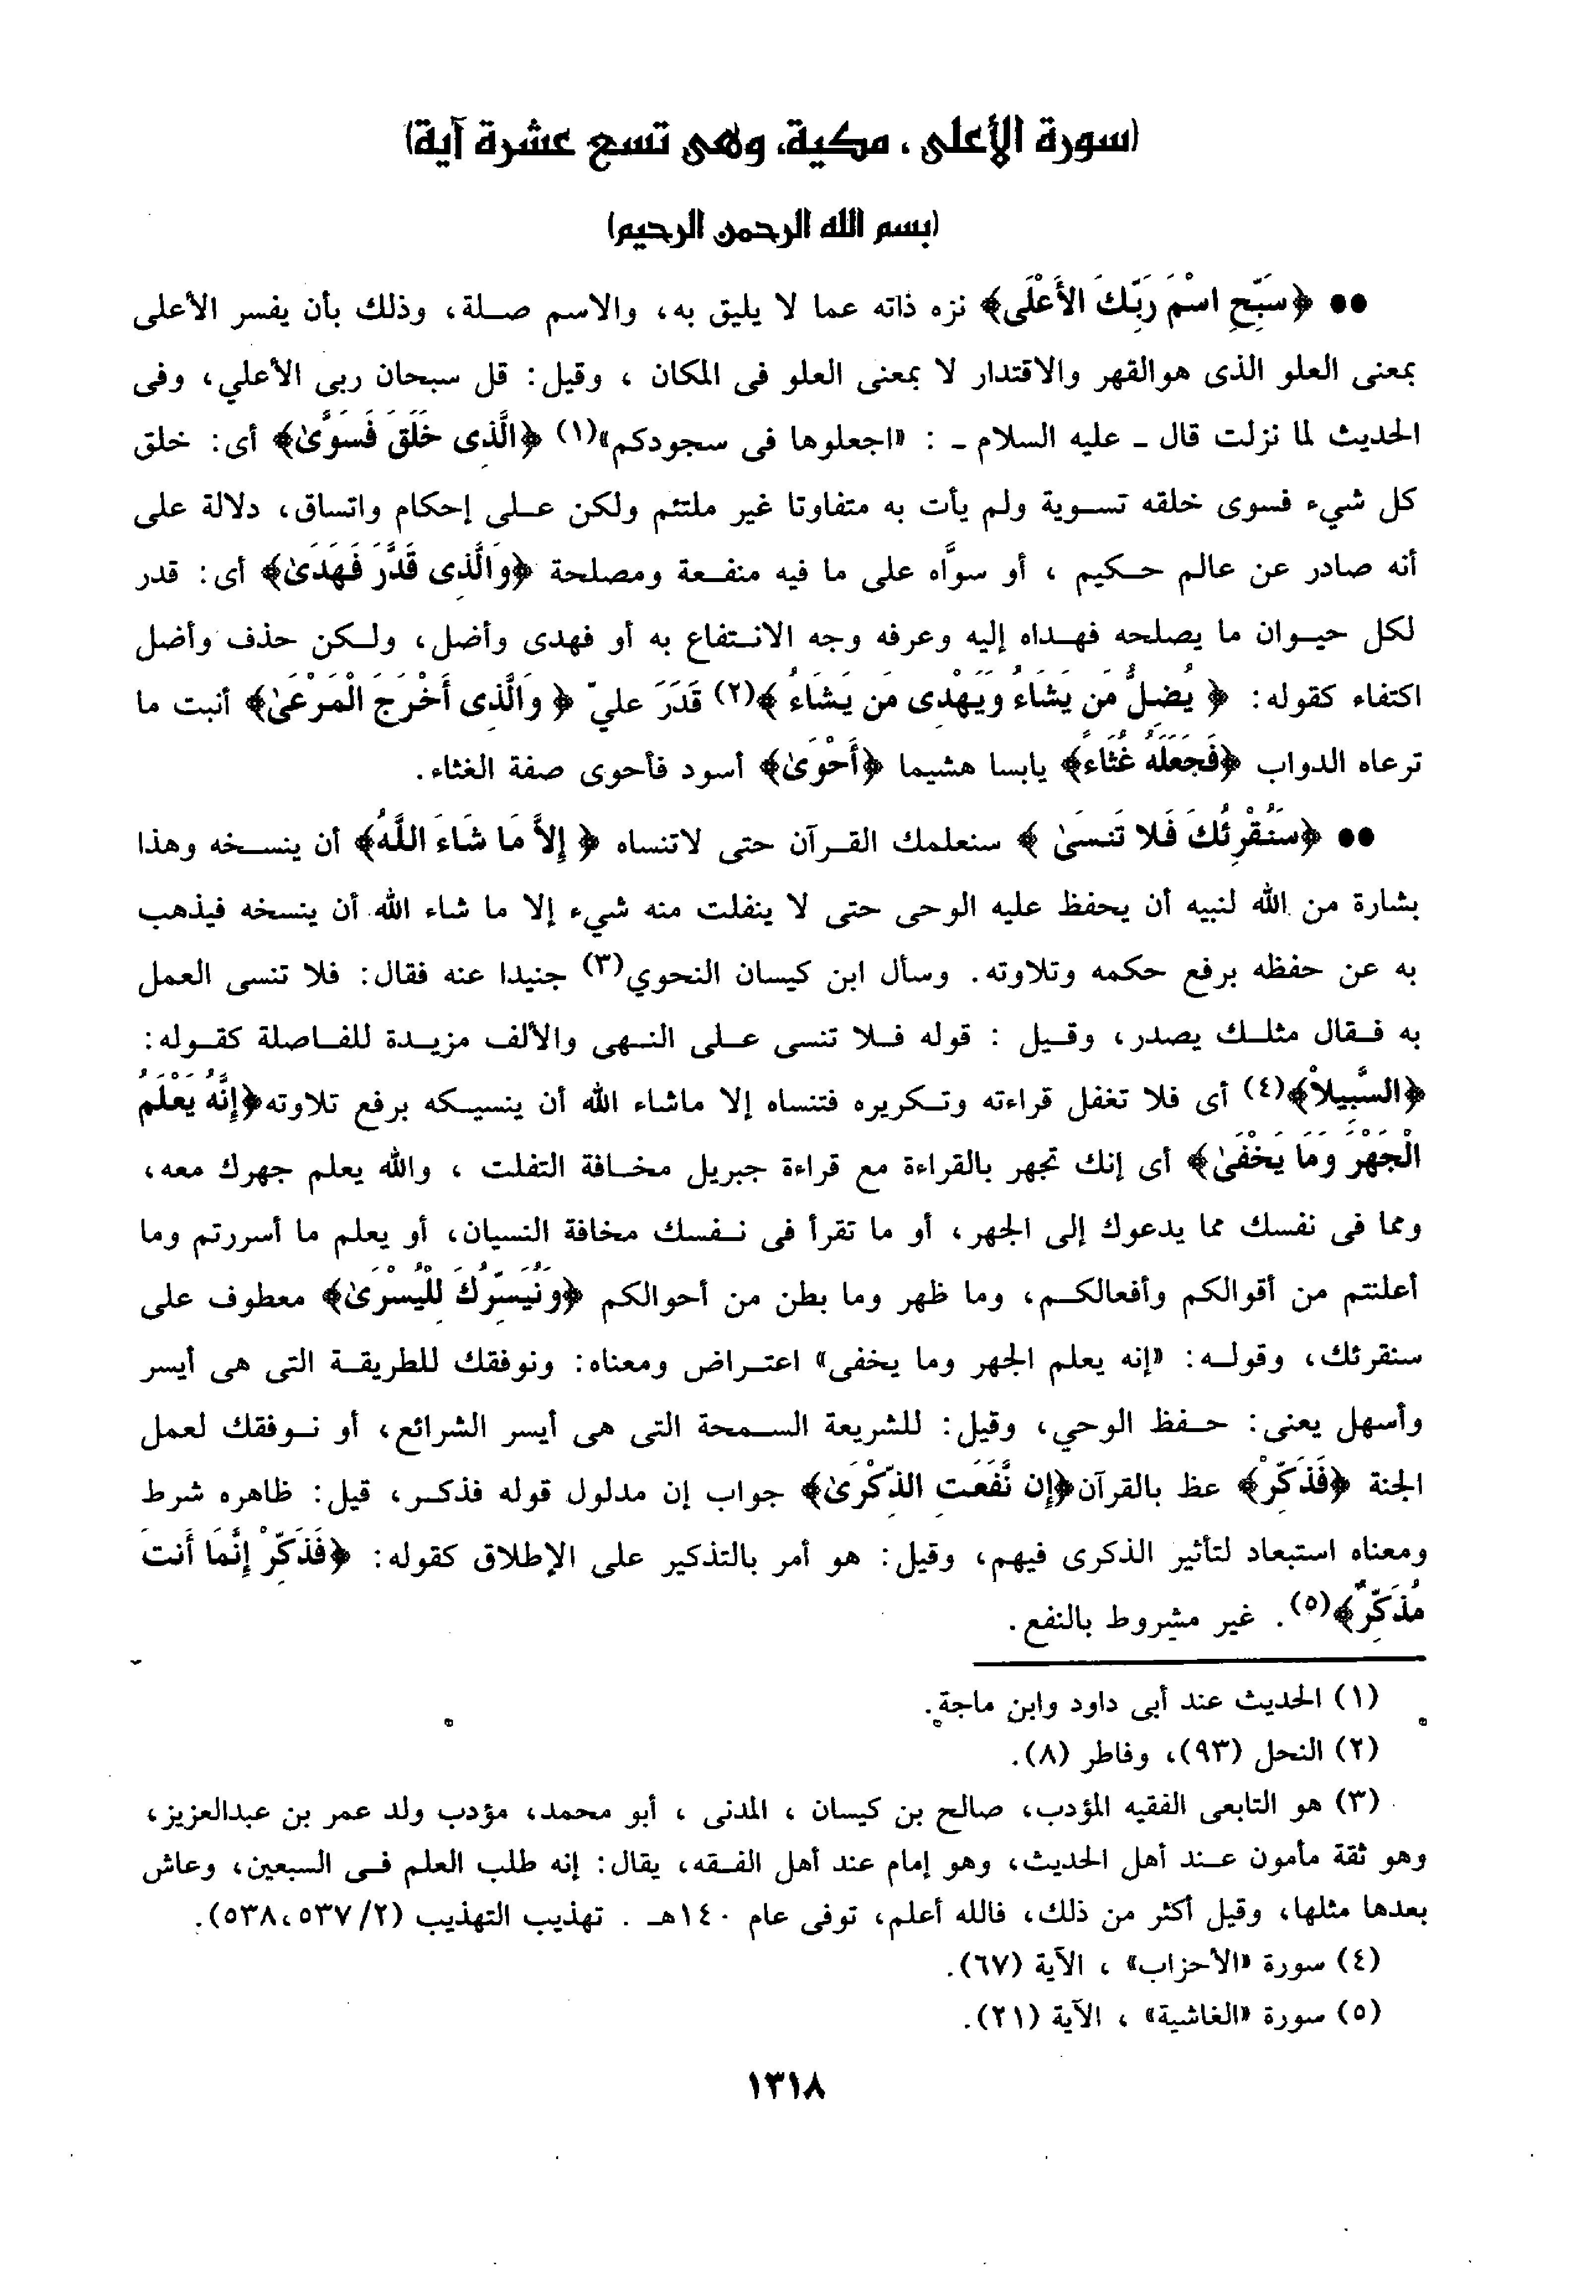 (سورة الأعلى ، مكية، وهى تسع عشرة آية)
(بسم الله الرحمن الرحيم)
●● ﴿سَبِّحِ اسْمَ رَبِّكَ الأَعْلَى﴾ نزه ذاته عما لا يليق به، والاسم صلة، وذلك بأن يفسر الأعلى
بمعنى العلو الذى هوالقهر والاقتدار لا بمعنى العلو فى المكان ، وقيل: قل سبحان ربى الأعلي، وفى
الحديث لما نزلت قال ـ عليه السلام ـ : «اجعلوها فى سجودكم»(١) ﴿الَّذِى خَلَقَ فَسَوَّىٰ﴾ أى: خلق
كل شيء فسوى خلقه تسوية ولم يأت به متفاوتا غير ملتئم ولكن على إحكام واتساق، دلالة على
أنه صادر عن عالم حكيم ، أو سوَّاه على ما فيه منفعة ومصلحة ﴿وَالَّذِى قَدَّرَ فَهَدَىٰ﴾ أى: قدر
لكل حيوان ما يصلحه فهداه إليه وعرفه وجه الانتفاع به أو فهدى وأضل، ولكن حذف وأضل
اكتفاء كقوله: ﴿ يُضِلُّ مَن يَشَاءُ وَيَهْدِى مَن يَشَاءُ ﴾(٢) قَدَرَ عليّ ﴿ وَالَّذِى أَخْرَجَ الْمَرْعَىٰ﴾ أنبت ما
ترعاه الدواب ﴿فَجَعَلَهُ غُثَاءً﴾ يابسا هشيما ﴿أَحْوَىٰ﴾ أسود فأحوى صفة الغثاء.
●● ﴿سَنُقْرِئُكَ فَلا تَنسَىٰ ﴾ سنعلمك القرآن حتى لاتنساه ﴿ إِلاَّ مَا شَاءَ اللَّهُ﴾ أن ينسخه وهذا
بشارة من الله لنبيه أن يحفظ عليه الوحى حتى لا ينفلت منه شيء إلا ما شاء الله أن ينسخه فيذهب
به عن حفظه برفع حكمه وتلاوته. وسأل ابن كيسان النحوي(٣) جنيدا عنه فقال: فلا تنسى العمل
به فقال مثلك يصدر، وقيل : قوله فلا تنسى على النهى والألف مزيدة للفاصلة كقوله:
﴿السَّبِيلاْ﴾(٤) أى فلا تغفل قراءته وتكريره فتنساه إلا ماشاء الله أن ينسيكه برفع تلاوته﴿إِنَّهُ يَعْلَمُ
الْجَهْرَ وَمَا يَخْفَىٰ﴾ أى إنك تجهر بالقراءة مع قراءة جبريل مخافة التفلت ، والله يعلم جهرك معه،
ومما فى نفسك مما يدعوك إلى الجهر، أو ما تقرأ فى نفسك مخافة النسيان، أو يعلم ما أسررتم وما
أعلنتم من أقوالكم وأفعالكم، وما ظهر وما بطن من أحوالكم ﴿وَنُيَسِّرُكَ لِلْيُسْرَىٰ﴾ معطوف على
سنقرئك، وقوله: «إنه يعلم الجهر وما يخفى» اعتراض ومعناه: ونوفقك للطريقة التى هى أيسر
وأسهل يعنى: حفظ الوحي، وقيل: للشريعة السمحة التى هى أيسر الشرائع، أو نوفقك لعمل
الجنة ﴿فَذَكِّرْ﴾ عظ بالقرآن﴿إِن نَّفَعَتِ الذِّكْرَىٰ﴾ جواب إن مدلول قوله فذكر، قيل: ظاهره شرط
ومعناه استبعاد لتأثير الذكرى فيهم، وقيل: هو أمر بالتذكير على الإطلاق كقوله: ﴿فَذَكِّرْ إِنَّمَا أَنتَ
مُذَكِّرٌ﴾(٥). غير مشروط بالنفع.
(١) الحديث عند أبى داود وابن ماجة.
(٢) النحل (٩٣)، وفاطر (٨).
(٣) هو التابعى الفقيه المؤدب، صالح بن كيسان ، المدنى ، أبو محمد، مؤدب ولد عمر بن عبدالعزيز،
وهو ثقة مأمون عند أهل الحديث، وهو إمام عند أهل الفقه، يقال: إنه طلب العلم فى السبعين، وعاش
بعدها مثلها، وقيل أكثر من ذلك، فالله أعلم، توفى عام ١٤٠هـ . تهذيب التهذيب (٥٣٨،٥٣٧/٢).
(٤) سورة «الأحزاب» ، الآية (٦٧).
(٥) سورة «الغاشية» ، الآية (٢١).
١٣١٨